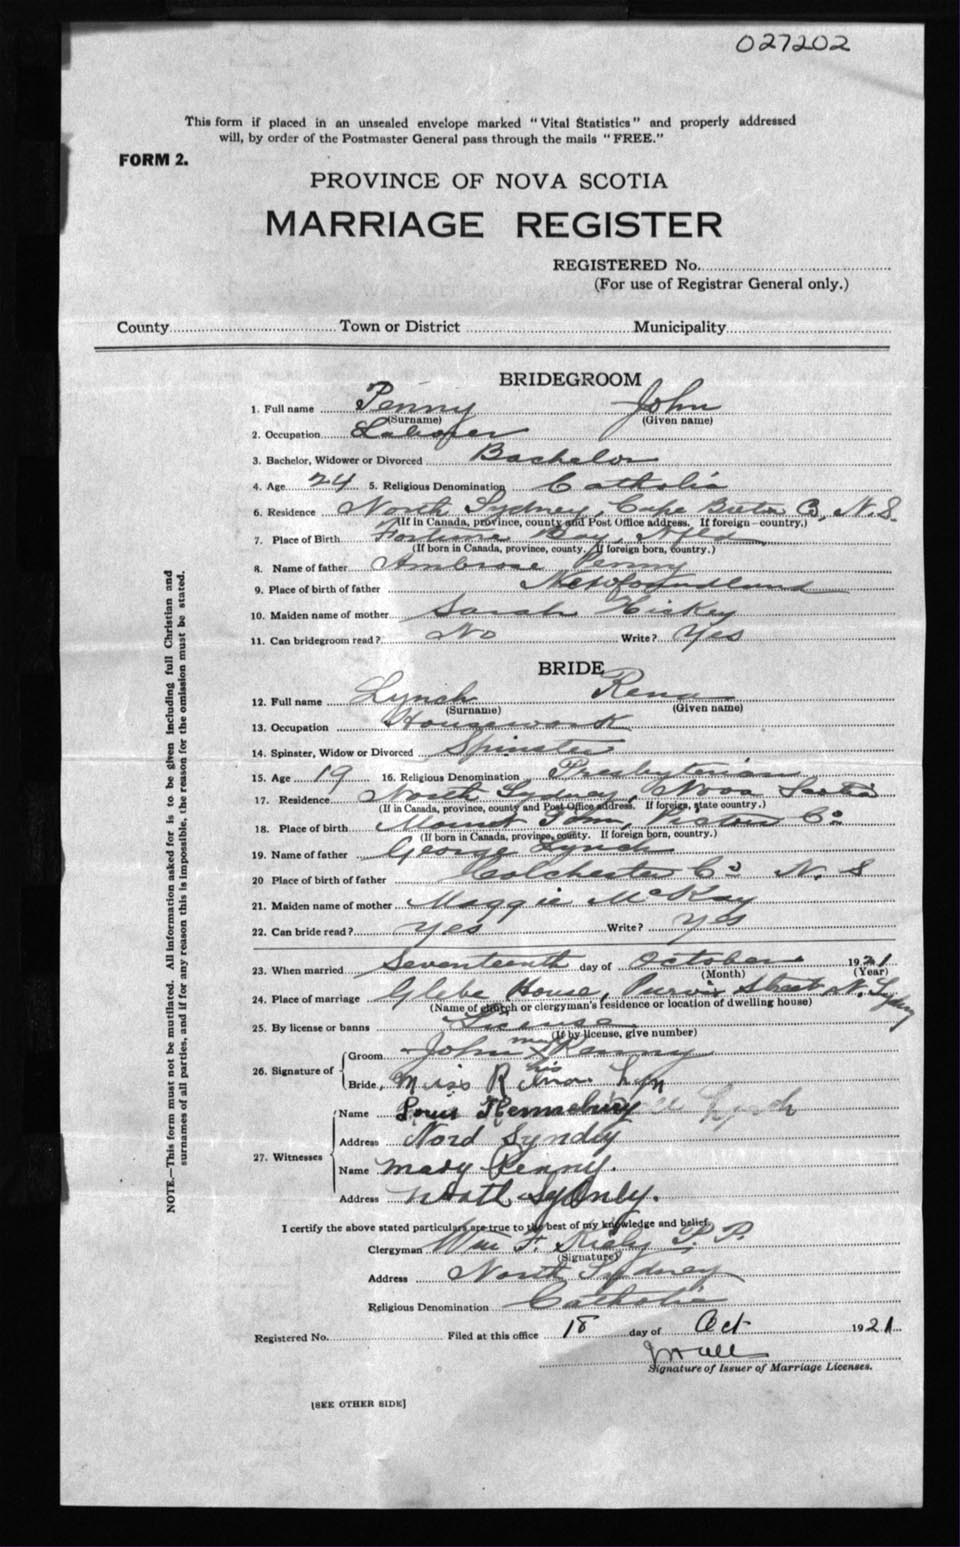 027202
This form if placed in an unsealed envelope marked "Vital Statistics" and properly addressed
will, by order of the Postmaster General pass through the mails "FREE."
FORM 2.
PROVINCE OF NOVA SCOTIA
MARRIAGE REGISTER
REGISTERED No.
(For use of Registrar General only.)
County Town or District Municipality
BRIDEGROOM
1. Full name Penny John
(Surname) (Given name)
2. Occupation Laborer
3. Bachelor, Widower or Divorced Bachelor
4. Age 24 5. Religious Denomination Catholic
6. Residence North Sydney, Cape Breton N.S.
(If in Canada, province, county and Post Office address. If foreign—country.)
7. Place of Birth Fortune Bay, Nfld
(If born in Canada, province, county. If foreign born, country.)
8. Name of father Ambrose Penny
9. Place of birth of father Newfoundland
10. Maiden name of mother Sarah Hickey
11. Can bridegroom read? No Write? Yes
BRIDE
12. Full name Lynch Rena
(Surname) (Given name)
13. Occupation Housework
14. Spinster, Widow or Divorced Spinster
15. Age 19 16. Religious Denomination Presbyterian
17. Residence North Sydney, Nova Scotia
(If in Canada, province, county and Post Office address. If foreign, state country.)
18. Place of birth Mount Thom, Pictou Co
(If born in Canada, province, county. If foreign born, country.)
19. Name of father George Lynch
20 Place of birth of father Colchester Co N. S
21. Maiden name of mother Maggie McKay
22. Can bride read? Yes Write? Yes
23. When married Seventeenth day of October 1921
(Month) (Year)
24. Place of marriage Glebe House, Purvis Street, N. Sydney
(Name of church or clergyman's residence or location of dwelling house)
25. By license or banns License
(If by license, give number)
26. Signature of
Groom John Penny
his
Bride, Miss R Lyn
27. Witnesses
Name Louis Lynch
Address Nord Syndey
Name Mary Penny.
Address Sydney.
I certify the above stated particulars are true to the best of my knowledge and belief.
Clergyman Wm F. Kiely P. P.
(Signature)
Address North Sydney
Religious Denomination Catholic
Registered No. Filed at this office 18 day of Oct 1921
Signature of Issuer of Marriage Licenses.
[SEE OTHER SIDE]
NOTE.—This form must not be mutilated. All information asked for is to be given including full Christian and
surnames of all parties, and if for any reason this is impossible, the reason for the omission must be stated.